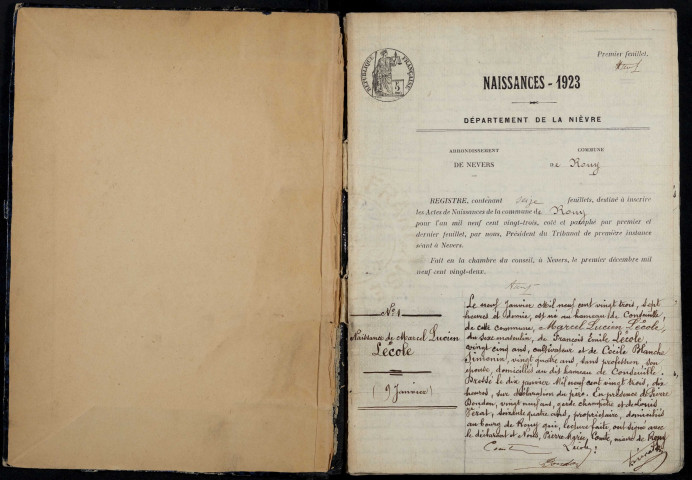 Premier feuillet.
RÉPUBLIQUE FRANÇAISE
NAISSANCES - 1923
DÉPARTEMENT DE LA NIÈVRE
ARRONDISSEMENT
DE NEVERS
COMMUNE
de Rouy
REGISTRE, contenant seize feuillets, destiné à inscrire
les Actes de Naissances de la commune de Rouy
pour l'an mil neuf cent vingt-trois, coté et paraphé par premier et
dernier feuillet, par nous, Président du Tribunal de première instance
séant à Nevers.
Fait en la chambre du conseil, à Nevers, le premier décembre mil
neuf cent vingt-deux.
N° 1
Naissance de Marcel Lucien
Lécole
(9 Janvier)
Le neuf Janvier Mil neuf cent vingt trois, sept
heures et demie, est né au hameau de
de cette commune, Marcel Lucien Lécole,
du sexe masculin, de François Emile Lécole
vingt cinq ans, cultivateur et de Cécile Blanche
Simonin, vingt quatre ans, sans profession son
épouse, domiciliés au dit hameau de
Dressé le dix janvier Mil neuf cent vingt trois, dix
heures, sur déclaration du père. En présence de Pierre
Doudon, vingt neuf ans, garde champêtre et de Louis
soixante quatre ans, propriétaire, domiciliés
au bourg de Rouy qui, lecture faite, ont signé avec
le déclarant et Nous, Pierre Marie, Comte, maire de Rouy.
Comte Lécole
Doudon